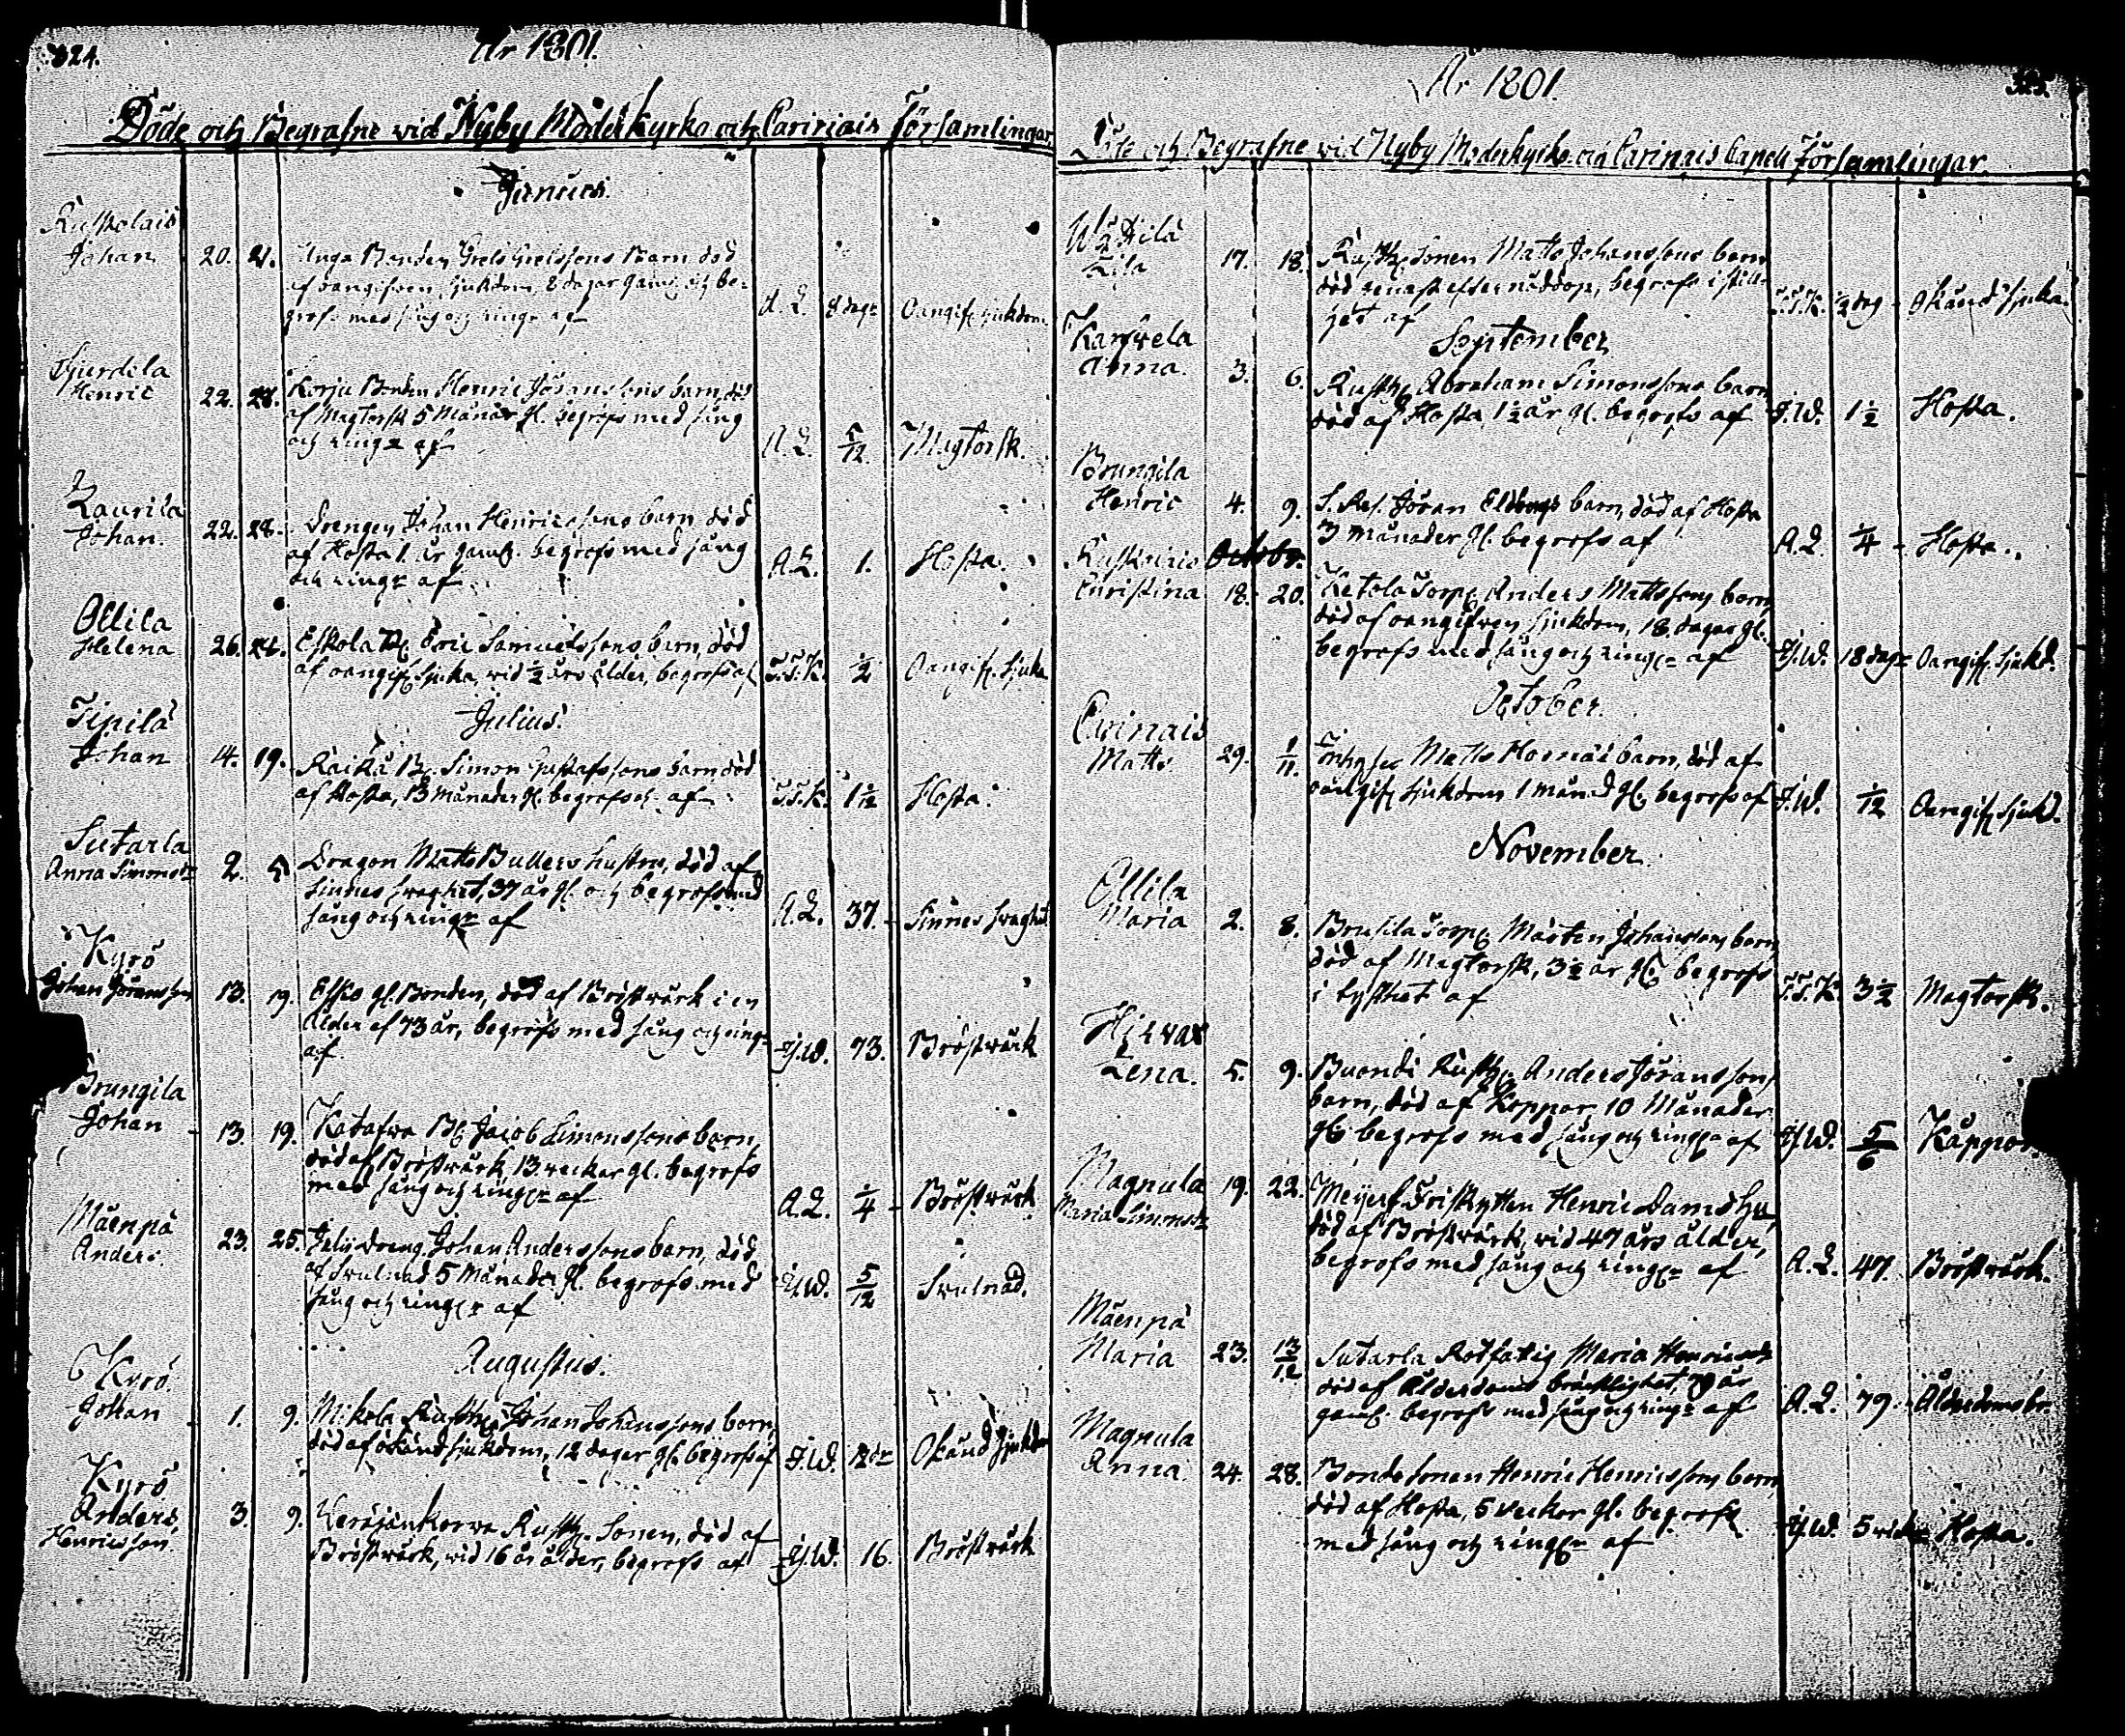 324.
År 1801.
Döde och Begrafne vid Nyby Moderkyrko och Carinais Församlingar
Junius.
Ruskolais
Johan 20. 21. Unga Bonden Grels Grelssons Barn död
af oangifven sjukdom, 8 dagar gamt, och be-
grofs med sång och ringn af A. L. 8 dagr Oangif. sjukdom.
Henric 22. 28. Korju Bonden Henric Jöranssons barn, död
af Magtorsk 5 Månar gl. begrofs med sång
och ringn af A. L. 5/12. Magtorsk.
Laurila
Johan. 22. 28. Drengen Johan Henricssons barn död
af Hosta 1. år gamt. begrofs med sång
och ringn af A. L. 1. Hosta.
Ollila
Helena 26. Eskola Eric Samuelssons barn, död
af oangif. sjuka, vid 1/2 års ålder, begrofs af 1/2 Oangif. sjuka
Julius.
Tipilä
Johan 14. 19. Raikå B. Simon Gustafssons barn död
af Hosta, 13 Månader gl. begrofs af 1 1/12 Hosta.
Sutarla
Anna Simonsdr 2. 5 Dragon Matts Bullers hustru, död af
sinnes svaghet, 37 år gl. och begrofs med
sång och ringn af A. L. 37. Sinnes svaghet
Kyrö
Johan Jöransson 13. 19. gl. Bonden, död af Bröstvärk i en
ålder af 73 år, begrofs med sång och ringn
af J. W. 73. Bröstvärk
Brungila
Johan 13. 19. Katafwa B. Jacob Simonssons barn,
död af Bröstvärk 13 veckor gl. begrofs
med sång och ringn af A. L. 1/4 Bröstvärk
Mäenpä
Anders. 23. 25. Dreng. Johan Anderssons barn, död
af Svulnad 5 Månader gl. begrofs med
sång och ringn af J. W. 5/12 Svulnad.
Augustus.
Kyrö.
Johan 1. 9. Mikola Rusth. Johan Johanssons barn
död af okänd sjukdom, 12 dagar gl. begrofs af J. W. Okänd sjukdom
Kyrö
Anders 3. 9. Rusth. Sonen, död af
Henricsson. Bröstvärk, vid 16 års ålder, begrofs af J. W. 16. Bröstvärk
År 1801.
325.
Döde och Begrafne vid Nyby Moderkyrko och Carinais Capell Församlingar.
17. 18. Rusth. Sonen Matts Johanssons barn
död genast efter nöddop, begrofs i still-
het af 1/2 dag Okänd sjuka.
September
Karwela
Anna. 3. 6. Rusth. Abraham Simonssons barn
död af Hosta 1 1/2 år gl. begrofs af J. W. 1 1/2 Hosta.
Brungila
Henric 4. 9. Jöran barn, död af Hosta
3 månader gl. begrofs af A. L. 1/4 Hosta.
Octobr.
Christina 18. 20. Ketola Torp. Anders Mattssons barn
död af oangifven sjukdom, 18 dagar gl.
begrofs med sång och ringn af J. W. 18 dagr Oangif. sjukd.
October.
Carinais
Matts. 29. 1/11. Matts barn, död af
oangif. sjukdom 1 månad gl. begrofs af J. W. 1/12 Oangif. sjukd.
November.
Ollila
Maria 2. 8. Brusila Torp. Mårten Johanssons barn
död af Magtorsk, 3 1/2 år gl. begrofs
i tysthet af 3 1/2 Magtorsk.
Hirvas
Lena. 5. 9. Rusth. Anders Jöranssons
barn, död af Koppor, 10 Månader
gl. begrofs med sång och ringn af J. W. 5/6 Kåppor.
Magnula
Maria Simonsdr 19. 22. Henric
död af Bröstvärk, vid 47 års ålder,
begrofs med sång och ringn af A. L. 47. Bröstvärk.
Mäenpä
Maria 23. 13/12 Sutarla Rotfatig Maria Henricsdr
död af Ålderdoms bräcklighet, 79 år
gamt. begrofs med sång och ringn af A. L. 79. Ålderdomsbr.
Magnula
Anna 24. 28. Bondesonen Henric Henricssons barn
död af Hosta, 5 veckor gl. begrofs
med sång och ringn af J. W. 5 vickr Hosta.